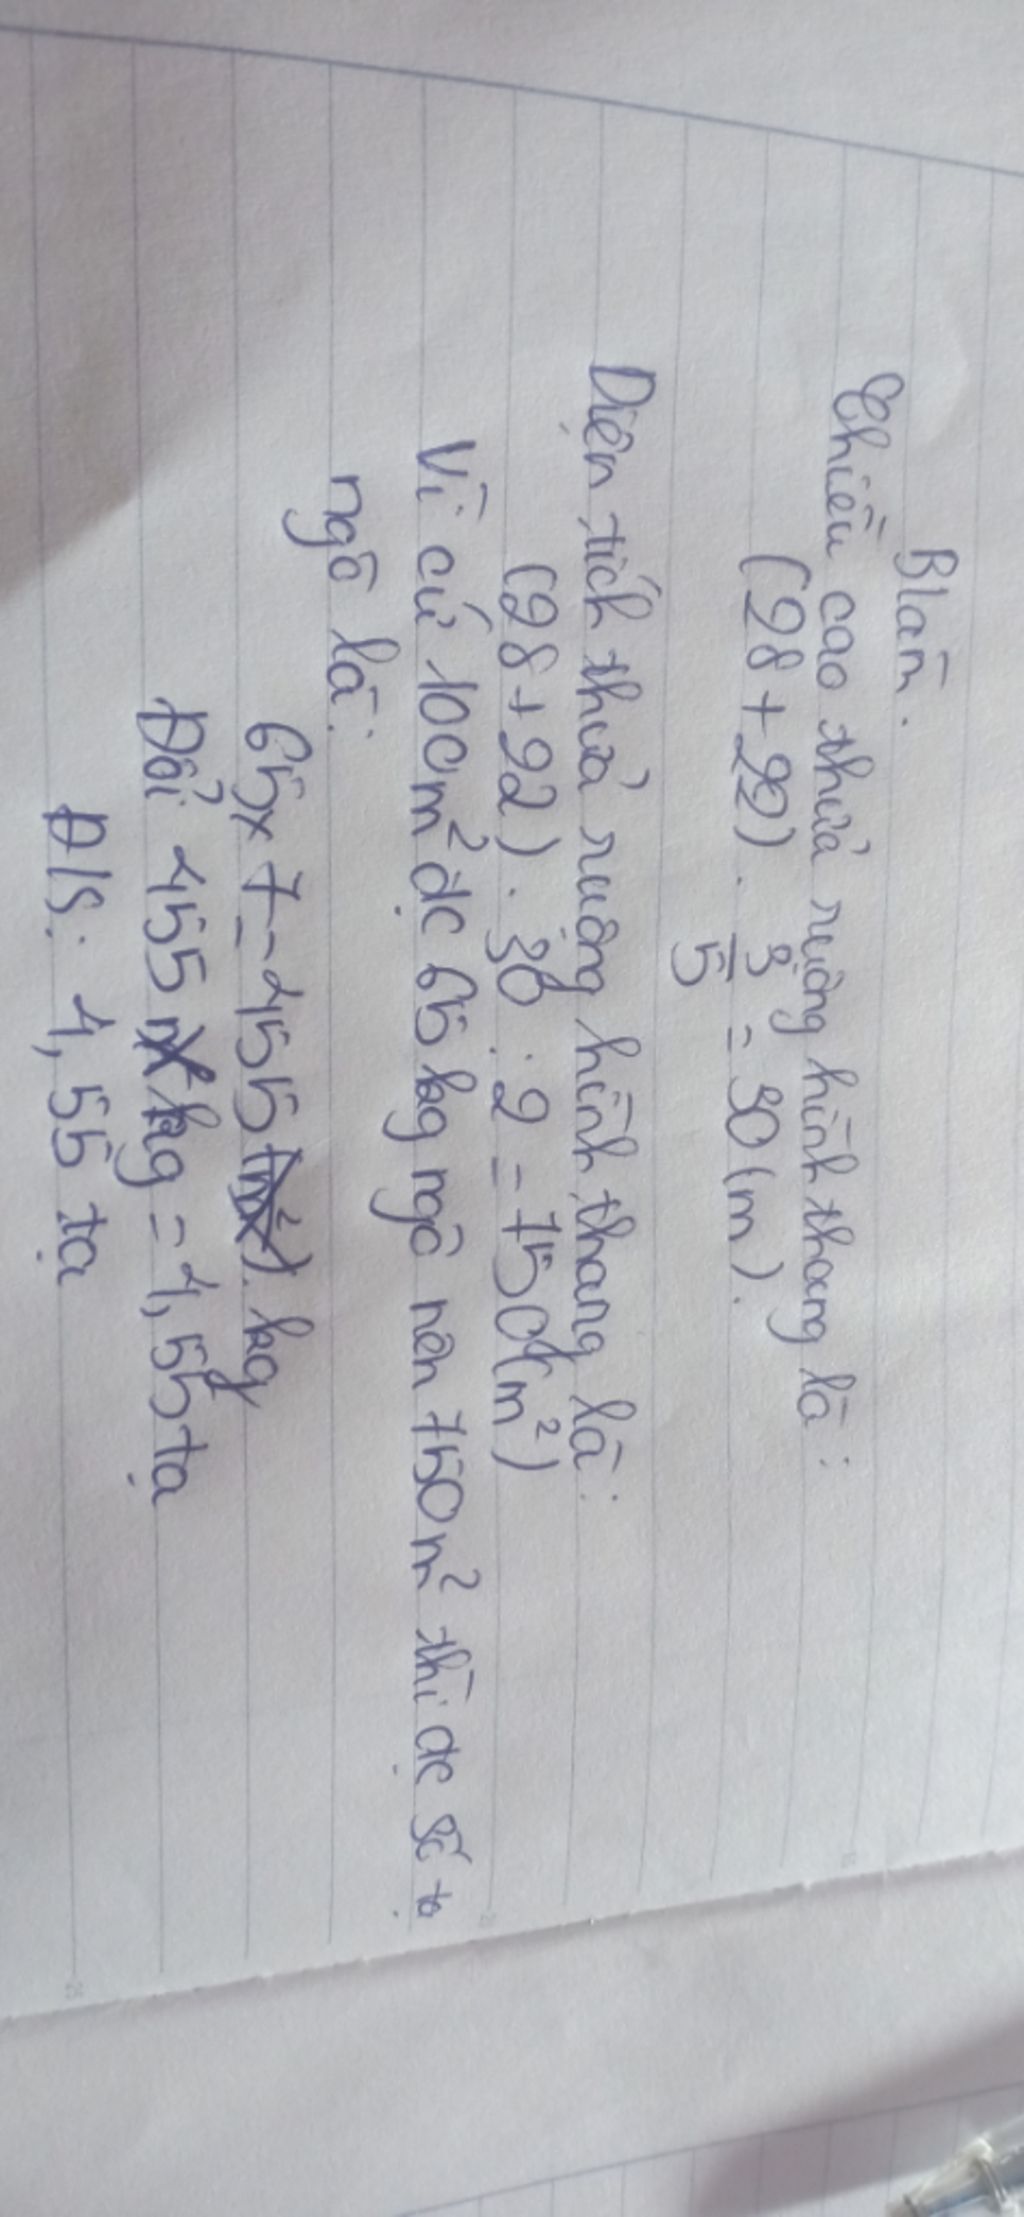 Blàm.
Chiều cao thửa ruộng hình thang là:
(28 + 22) . 3/5 = 30 (m).
Diện tích thửa ruộng hình thang là:
(28 + 22) . 30 : 2 = 750 (m²)
Vì cứ 100m² đc 65 kg ngô nên 750m² thì đc số tạ
ngô là:
65 x 7 = 455 kg
Đổi 455 kg = 4,55 tạ
Đ/S: 4,55 tạ